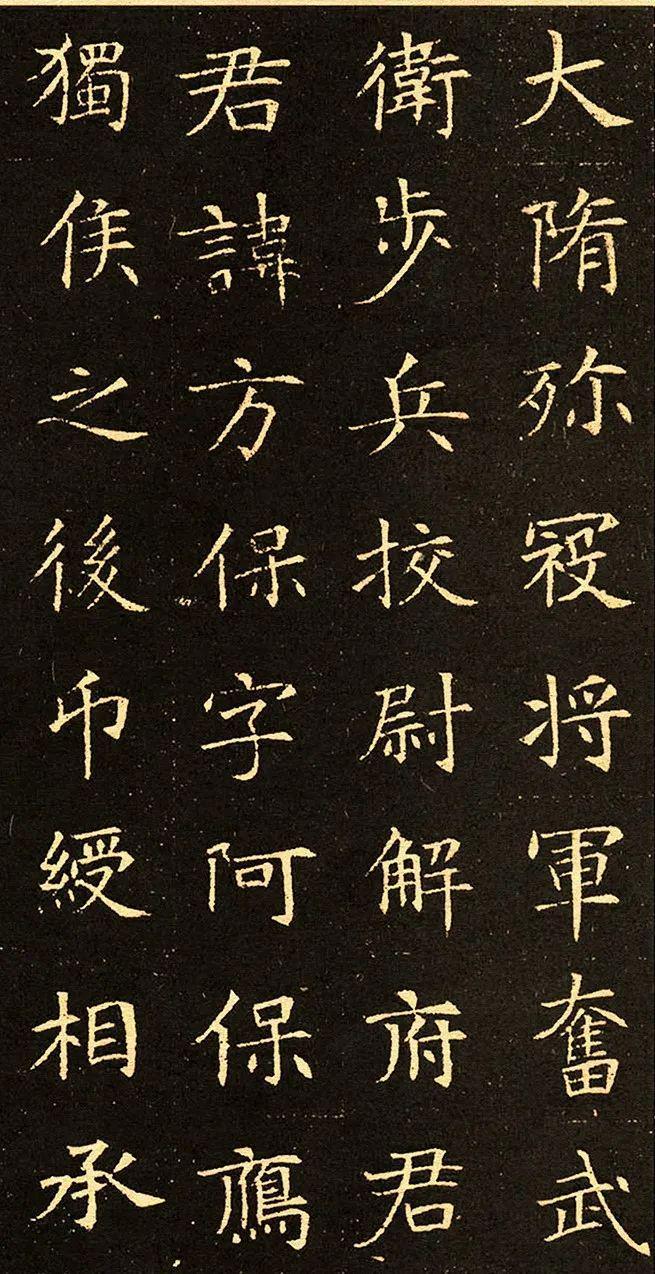 大隋殄寇将軍奮武
衛步兵挍尉解府君
君諱方保字阿保鴈
獨侯之後印綬相承